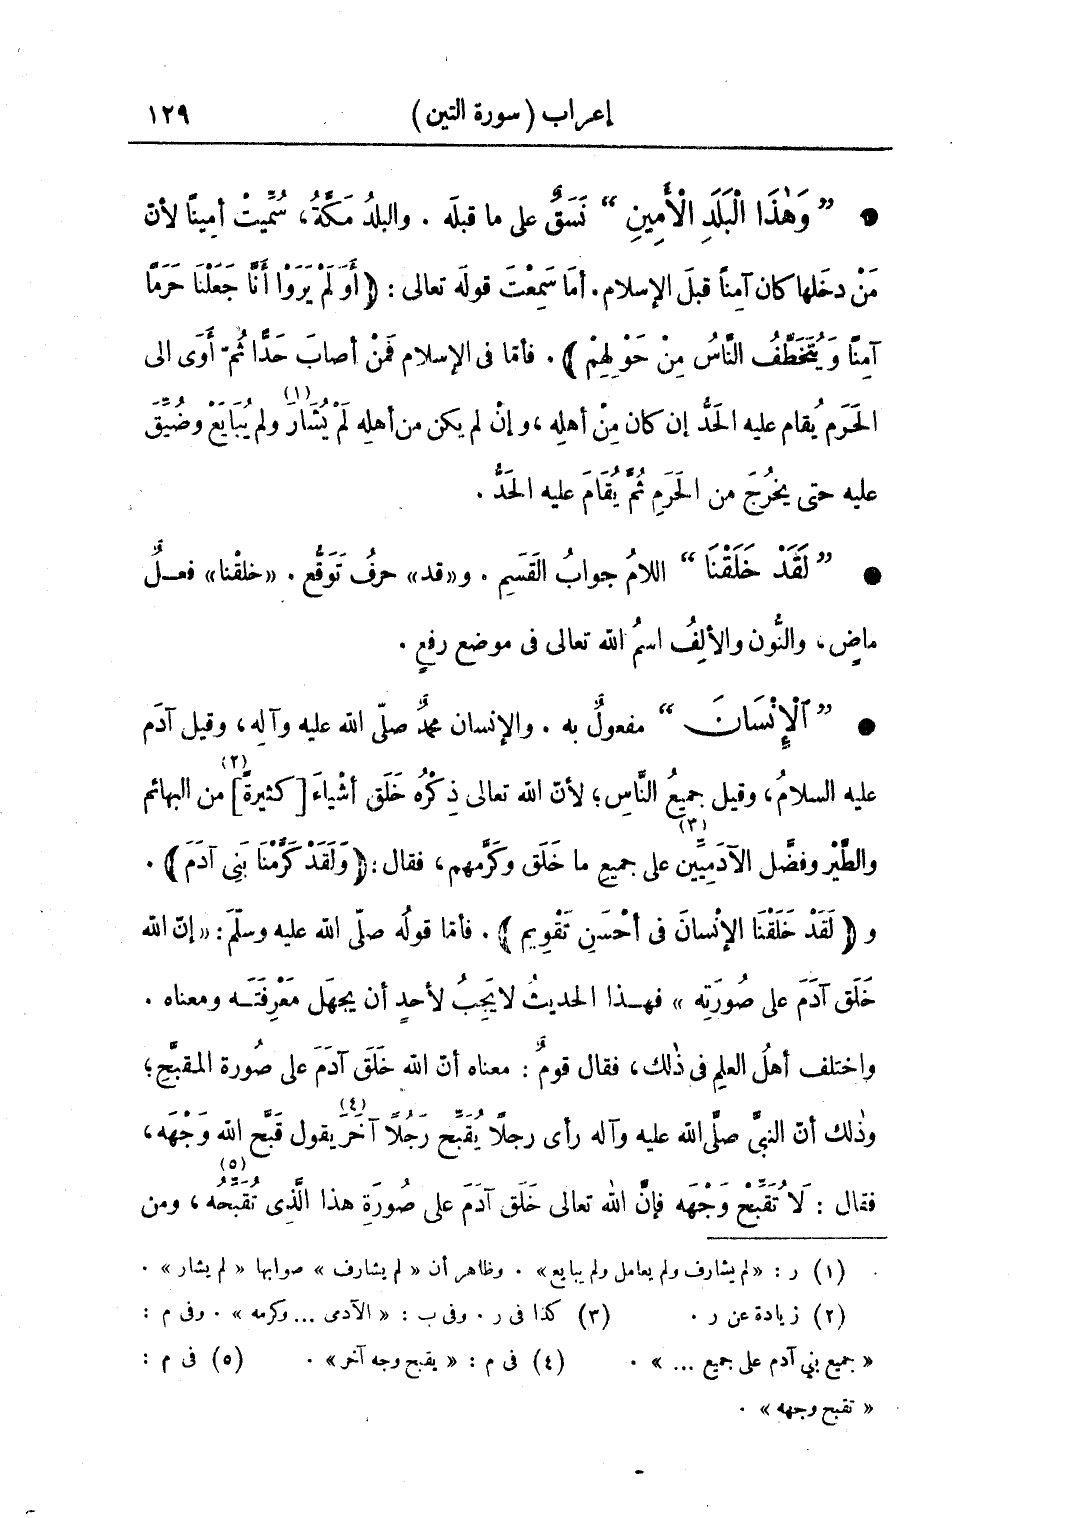 إعراب (سورة التين) ١٢٩
● ” وَهٰذَا الْبَلَدِ الْأَمِينِ “ نَسَقٌ على ما قبلَه . والبلدُ مَكَّةُ، سُمِّيتْ أمينًا لأنّ
مَنْ دخَلها كان آمِنًا قبلَ الإسلام. أمَا سَمِعْتَ قولَه تعالى : ﴿ أَوَ لَمْ يَرَوْا أَنَّا جَعَلْنَا حَرَمًا
آمِنًا وَيُتَخَطَّفُ النَّاسُ مِنْ حَوْلِهِمْ ﴾ . فأمّا فى الإسلام فَمَنْ أصابَ حَدًّا ثُمّ أَوَى الى
الحَرَم يُقام عليه الحَدُّ إن كان مِنْ أهلِه ، وإنْ لم يكن من أهلِه لَمْ يُشَارَ (١) ولم يُبَايَعْ وضُيِّقَ
عليه حتى يخرُجَ من الحَرَمِ ثُمَّ يُقَامَ عليه الحَدُّ .
● ” لَقَدْ خَلَقْنَا “ اللامُ جوابُ القَسَمِ . و«قد» حرفُ تَوَقُّع . «خلقْنا» فعــلٌ
ماضٍ ، والنُّون والألِفُ اسمُ الله تعالى فى موضع رفعٍ .
● ” ٱلْإِنْسَانَ “ مفعولٌ به . والإنسان محمدٌ صلّى الله عليه وآلِه ، وقيل آدَم
عليه السلامُ، وقيل جميعُ النَّاسِ ؛ لأنّ الله تعالى ذِكْرُه خَلَق أشْياءَ [كثيرةً] (٢) من البهائم
والطَّيْر وفضَّل الآدَمِيِّين (٣) على جميعِ ما خَلَق وكَرَّمهم، فقال : ﴿ وَلَقَدْ كَرَّمْنَا بَنِى آدَمَ ﴾ .
و ﴿ لَقَدْ خَلَقْنَا الإنْسانَ فى أحْسَنِ تَقْوِيم ﴾ . فأمّا قولُه صلّى الله عليه وسلّمَ : « إنّ الله
خَلَق آدَمَ على صُورَتِه » فهـذا الحديثُ لا يَجِبُ لأحدٍ أن يجهَل مَعْرِفَتَـه ومعناه .
واختلف أهلُ العلمِ فى ذٰلك ، فقال قومٌ : معناه أنّ الله خَلَقَ آدَمَ على صُورة المقبَّحِ ؛
وذٰلك أنّ النبىَّ صلَّى الله عليه وآله رأى رجلًا يُقَبِّح رَجُلًا آخَرَ (٤) يقول قَبَّح اللهُ وَجْهَه ،
فقال : لَا تُقَبِّحْ وَجْهَه فإنَّ الله تعالى خَلَق آدَمَ على صُورَةِ هذا الَّذِى تُقَبِّحُه (٥) ، ومن
(١) ر : «لم يشارف ولم يعامل ولم يبايع» . وظاهر أن « لم يشارف » صوابها « لم يشار » .
(٢) زيادة عن ر . (٣) كذا فى ر . وفى ب : « الآدمى ... وكرمه » . وفى م :
« جميع بني آدم على جميع ... » . (٤) فى م : « يقبح وجه آخر » . (٥) فى م :
« تقبح وجهه » .